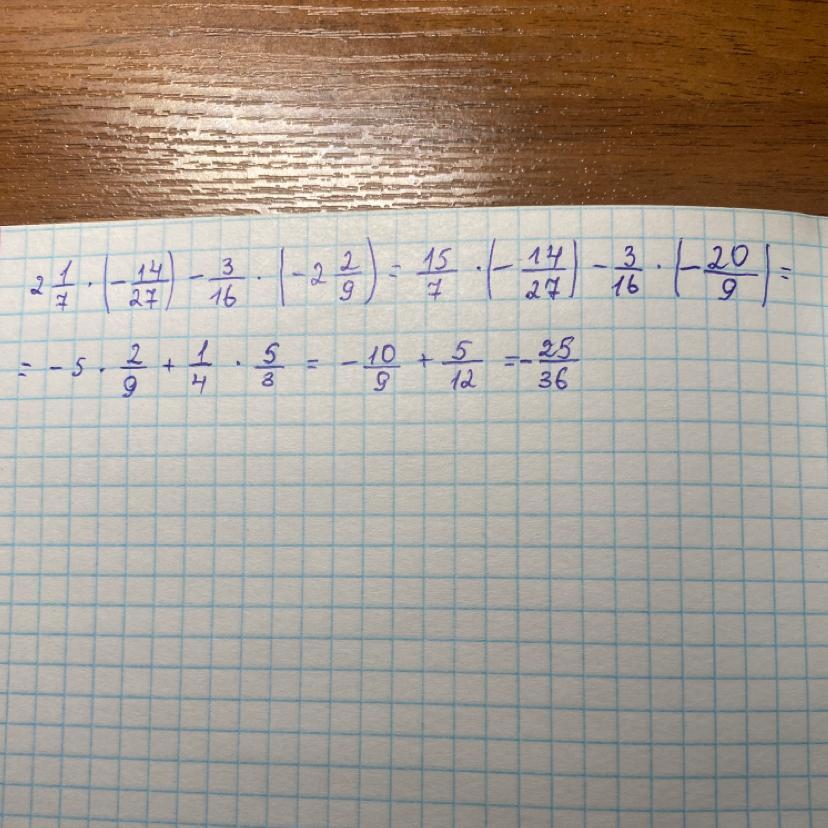 2 1/7 · (-14/27) - 3/16 · (-2 2/9) = 15/7 · (-14/27) - 3/16 · (-20/9) =
= -5 · 2/9 + 1/4 · 5/3 = -10/9 + 5/12 = -25/36